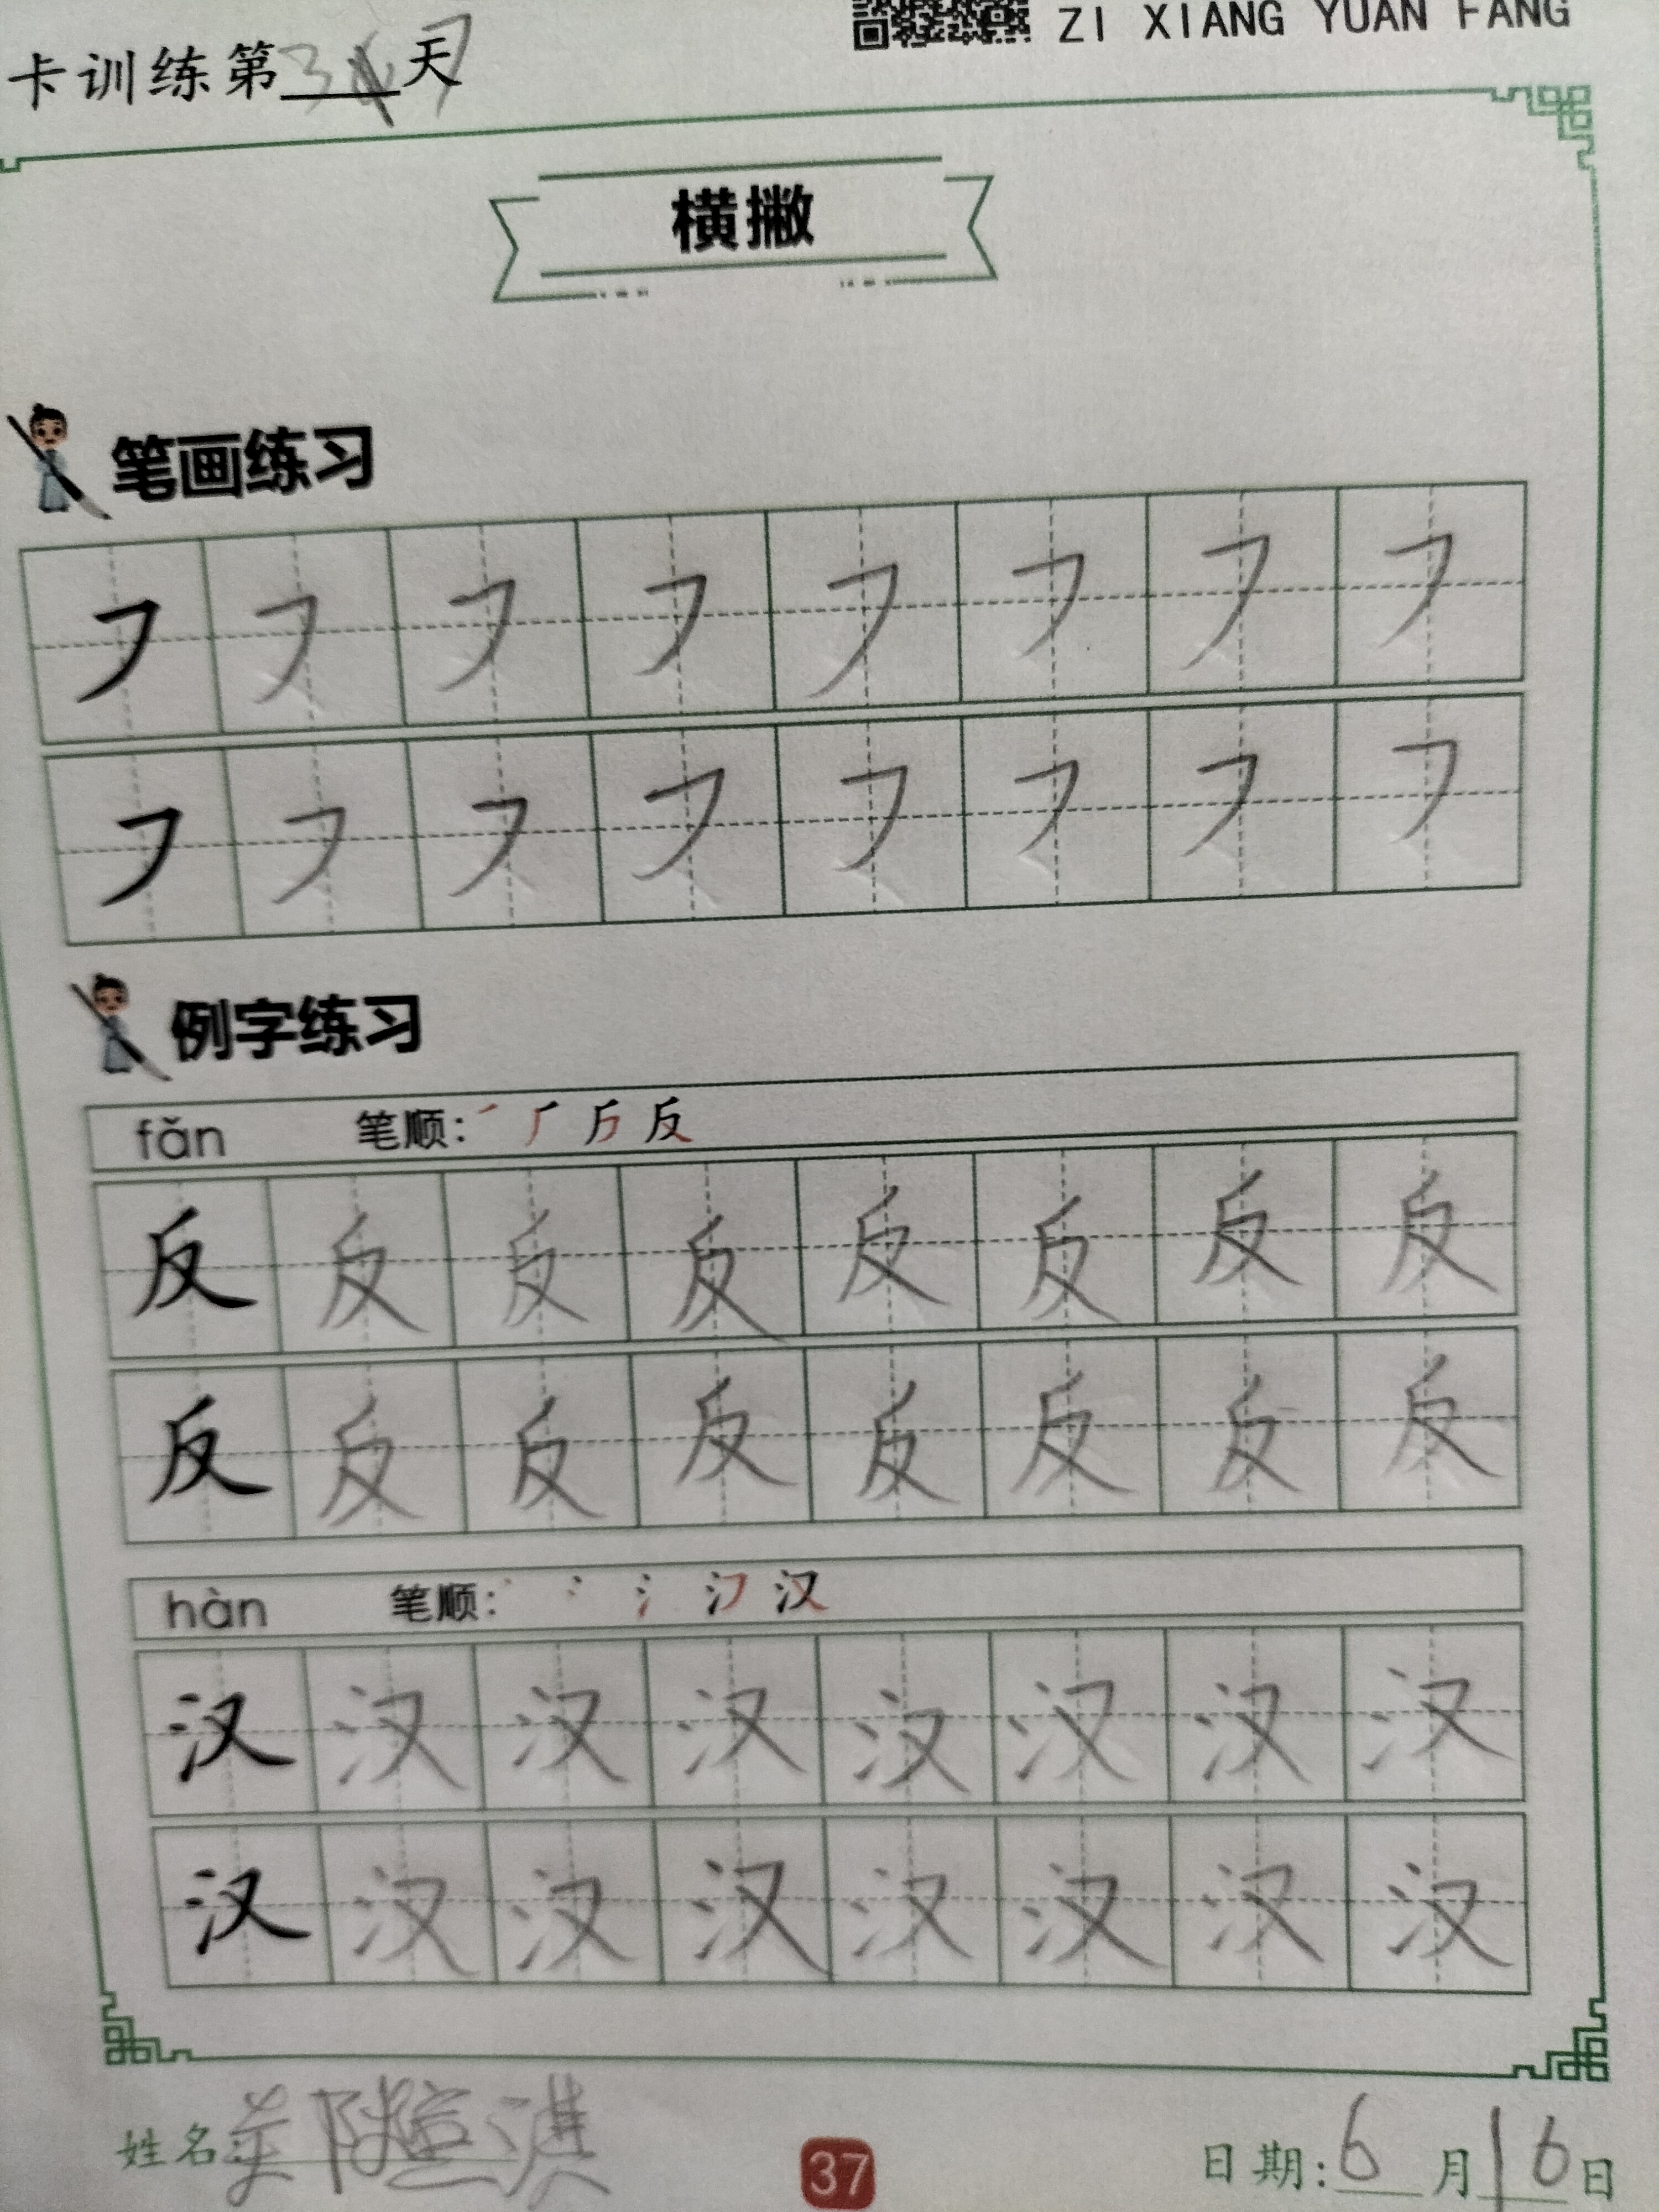 ZI XIANG YUAN FANG
卡训练第37天
横撇
笔画练习
㇇㇇㇇㇇㇇㇇㇇㇇
㇇㇇㇇㇇㇇㇇㇇㇇
例字练习
fǎn 笔顺: 反
反反反反反反反反
反反反反反反反反
hàn 笔顺: 氵 汉
汉汉汉汉汉汉汉汉
汉汉汉汉汉汉汉汉
姓名:
37
日期: 6月16日